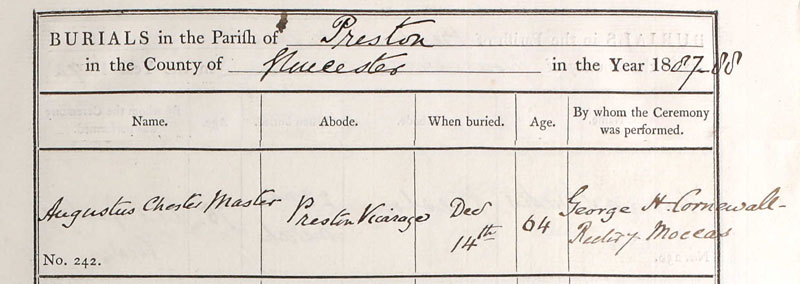 BURIALS in the Parish of Preston
in the County of Gloucester in the Year 1887-88
Name. Abode. When buried. Age. By whom the Ceremony was performed.
Augustus Chester Master Preston Vicarage Dec 14th 64 George H. Cornewall - Rector of Moccas
No. 242.